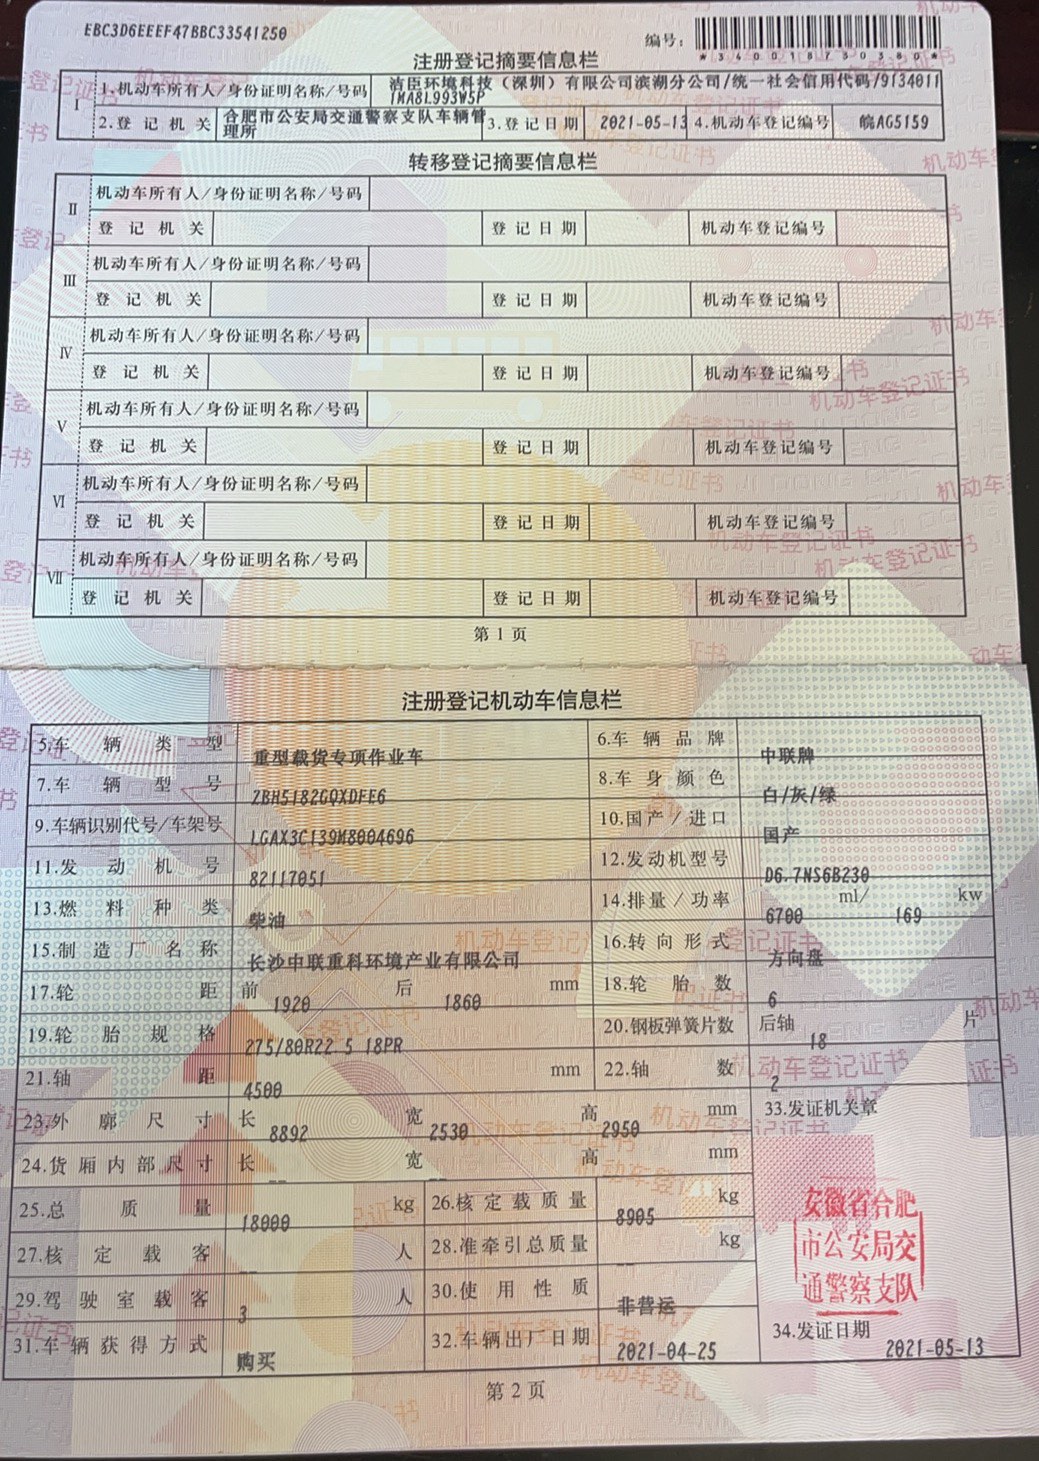 EBC3D6EEEF47BBC33541250
编号:
*340018730380*
注册登记摘要信息栏
I
1.机动车所有人/身份证明名称/号码 洁臣环境科技（深圳）有限公司滨湖分公司/统一社会信用代码/9134011
1MA8L993W5P
2.登记机关 合肥市公安局交通警察支队车辆管理所 3.登记日期 2021-05-13 4.机动车登记编号 皖AG5159
转移登记摘要信息栏
II
机动车所有人/身份证明名称/号码
登记机关 登记日期 机动车登记编号
III
机动车所有人/身份证明名称/号码
登记机关 登记日期 机动车登记编号
IV
机动车所有人/身份证明名称/号码
登记机关 登记日期 机动车登记编号
V
机动车所有人/身份证明名称/号码
登记机关 登记日期 机动车登记编号
VI
机动车所有人/身份证明名称/号码
登记机关 登记日期 机动车登记编号
VII
机动车所有人/身份证明名称/号码
登记机关 登记日期 机动车登记编号
第1页
注册登记机动车信息栏
5.车辆类型 重型载货专项作业车 6.车辆品牌 中联牌
7.车辆型号 ZBH5182GQXDFE6 8.车身颜色 白/灰/绿
9.车辆识别代号/车架号 LGAX3C139M8004696 10.国产/进口 国产
11.发动机号 82117051 12.发动机型号 D6.7NS6B230
13.燃料种类 柴油 14.排量/功率 6700 ml/ 169 kw
15.制造厂名称 长沙中联重科环境产业有限公司 16.转向形式 方向盘
17.轮距 前 1920 后 1860 mm 18.轮胎数 6
19.轮胎规格 275/80R22.5 18PR 20.钢板弹簧片数 后轴 18 片
21.轴距 4500 mm 22.轴数 2
23.外廓尺寸 长 8892 宽 2530 高 2950 mm 33.发证机关章
24.货厢内部尺寸 长 -- 宽 -- 高 mm
25.总质量 18000 kg 26.核定载质量 8905 kg
27.核定载客 -- 人 28.准牵引总质量 -- kg
29.驾驶室载客 3 人 30.使用性质 非营运
31.车辆获得方式 购买 32.车辆出厂日期 2021-04-25
安徽省合肥
市公安局交
通警察支队
34.发证日期 2021-05-13
第2页